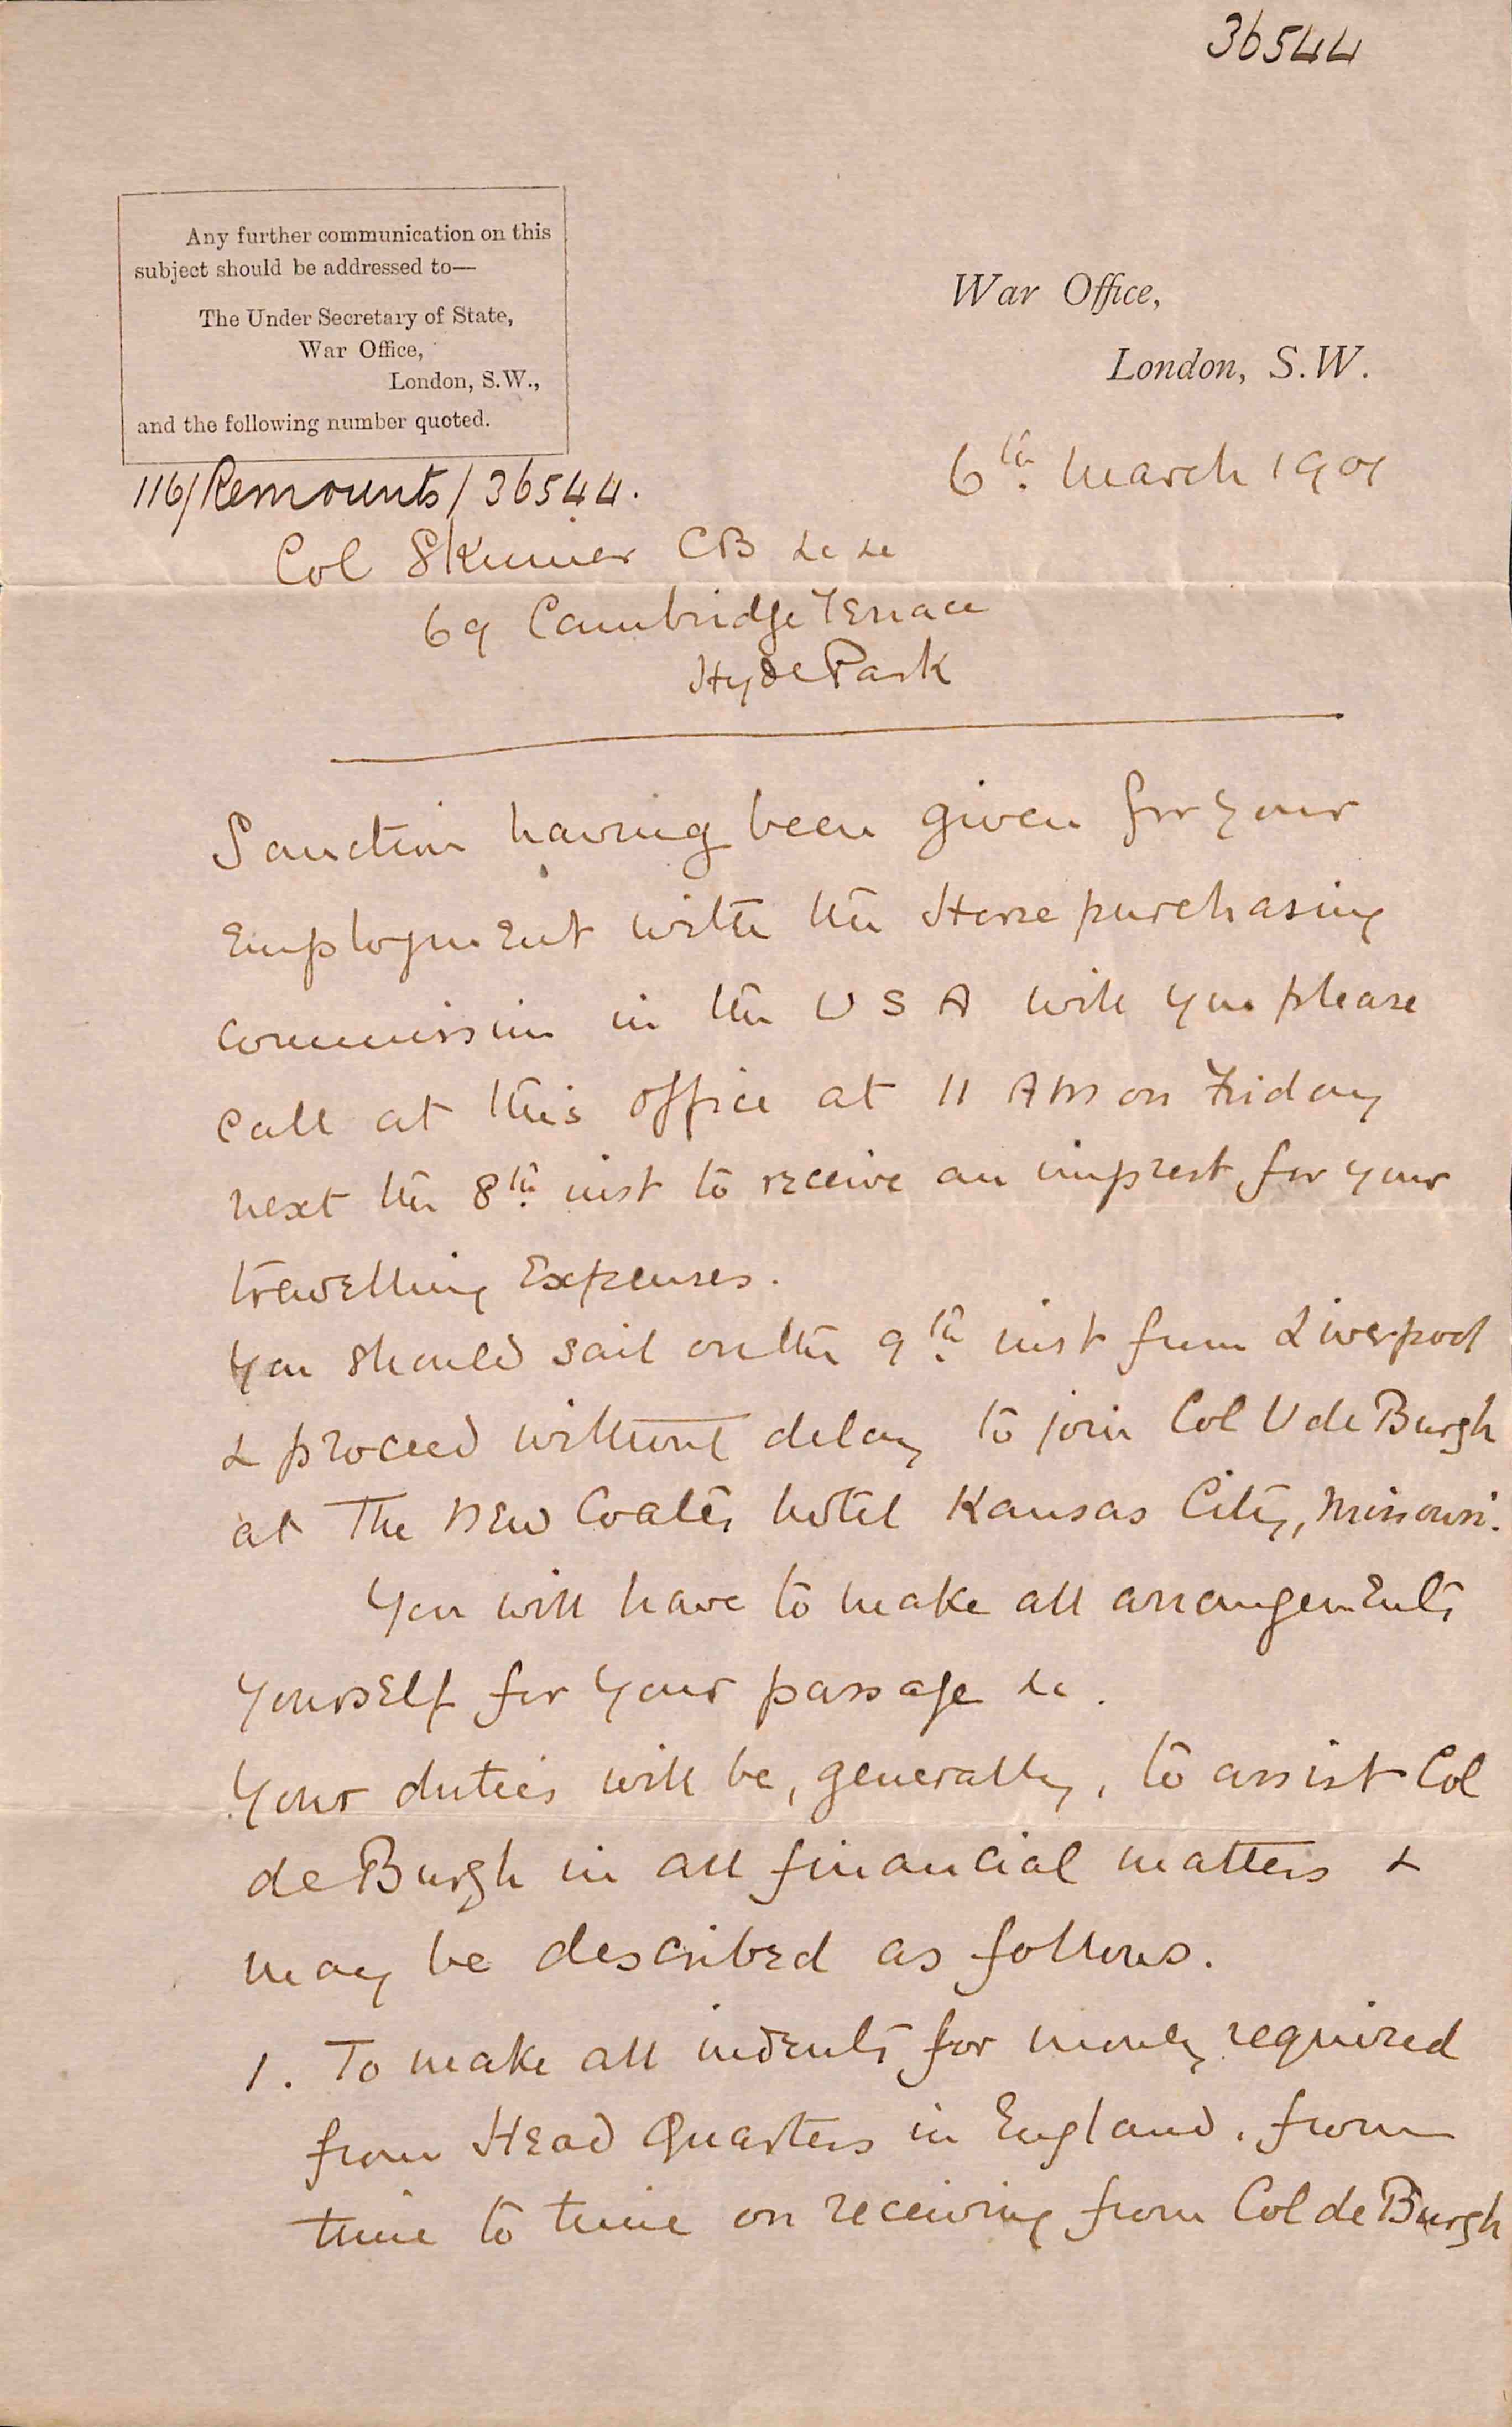 36544
Any further communication on this
subject should be addressed to—
The Under Secretary of State,
War Office,
London, S.W.,
and the following number quoted.
116/Remounts/36544.
War Office,
London, S.W.
6th. March 1901
Col Skinner CB &c &c
69 Cambridge Terrace
Hyde Park
Sanction having been given for your
Employment with the Horse purchasing
Commission in the U S A will you please
call at this office at 11 AM on Friday
next the 8th. inst to receive an imprest for your
travelling Expenses.
You should sail on the 9th. inst from Liverpool
& proceed without delay to join Col U de Burgh
at The New Coates hotel Kansas City, Missouri.
You will have to make all arrangements
yourself for your passage &c.
Your duties will be, generally, to assist Col
de Burgh in all financial matters &
may be described as follows.
1. To make all indents for money required
from Head Quarters in England, from
time to time on receiving from Col de Burgh